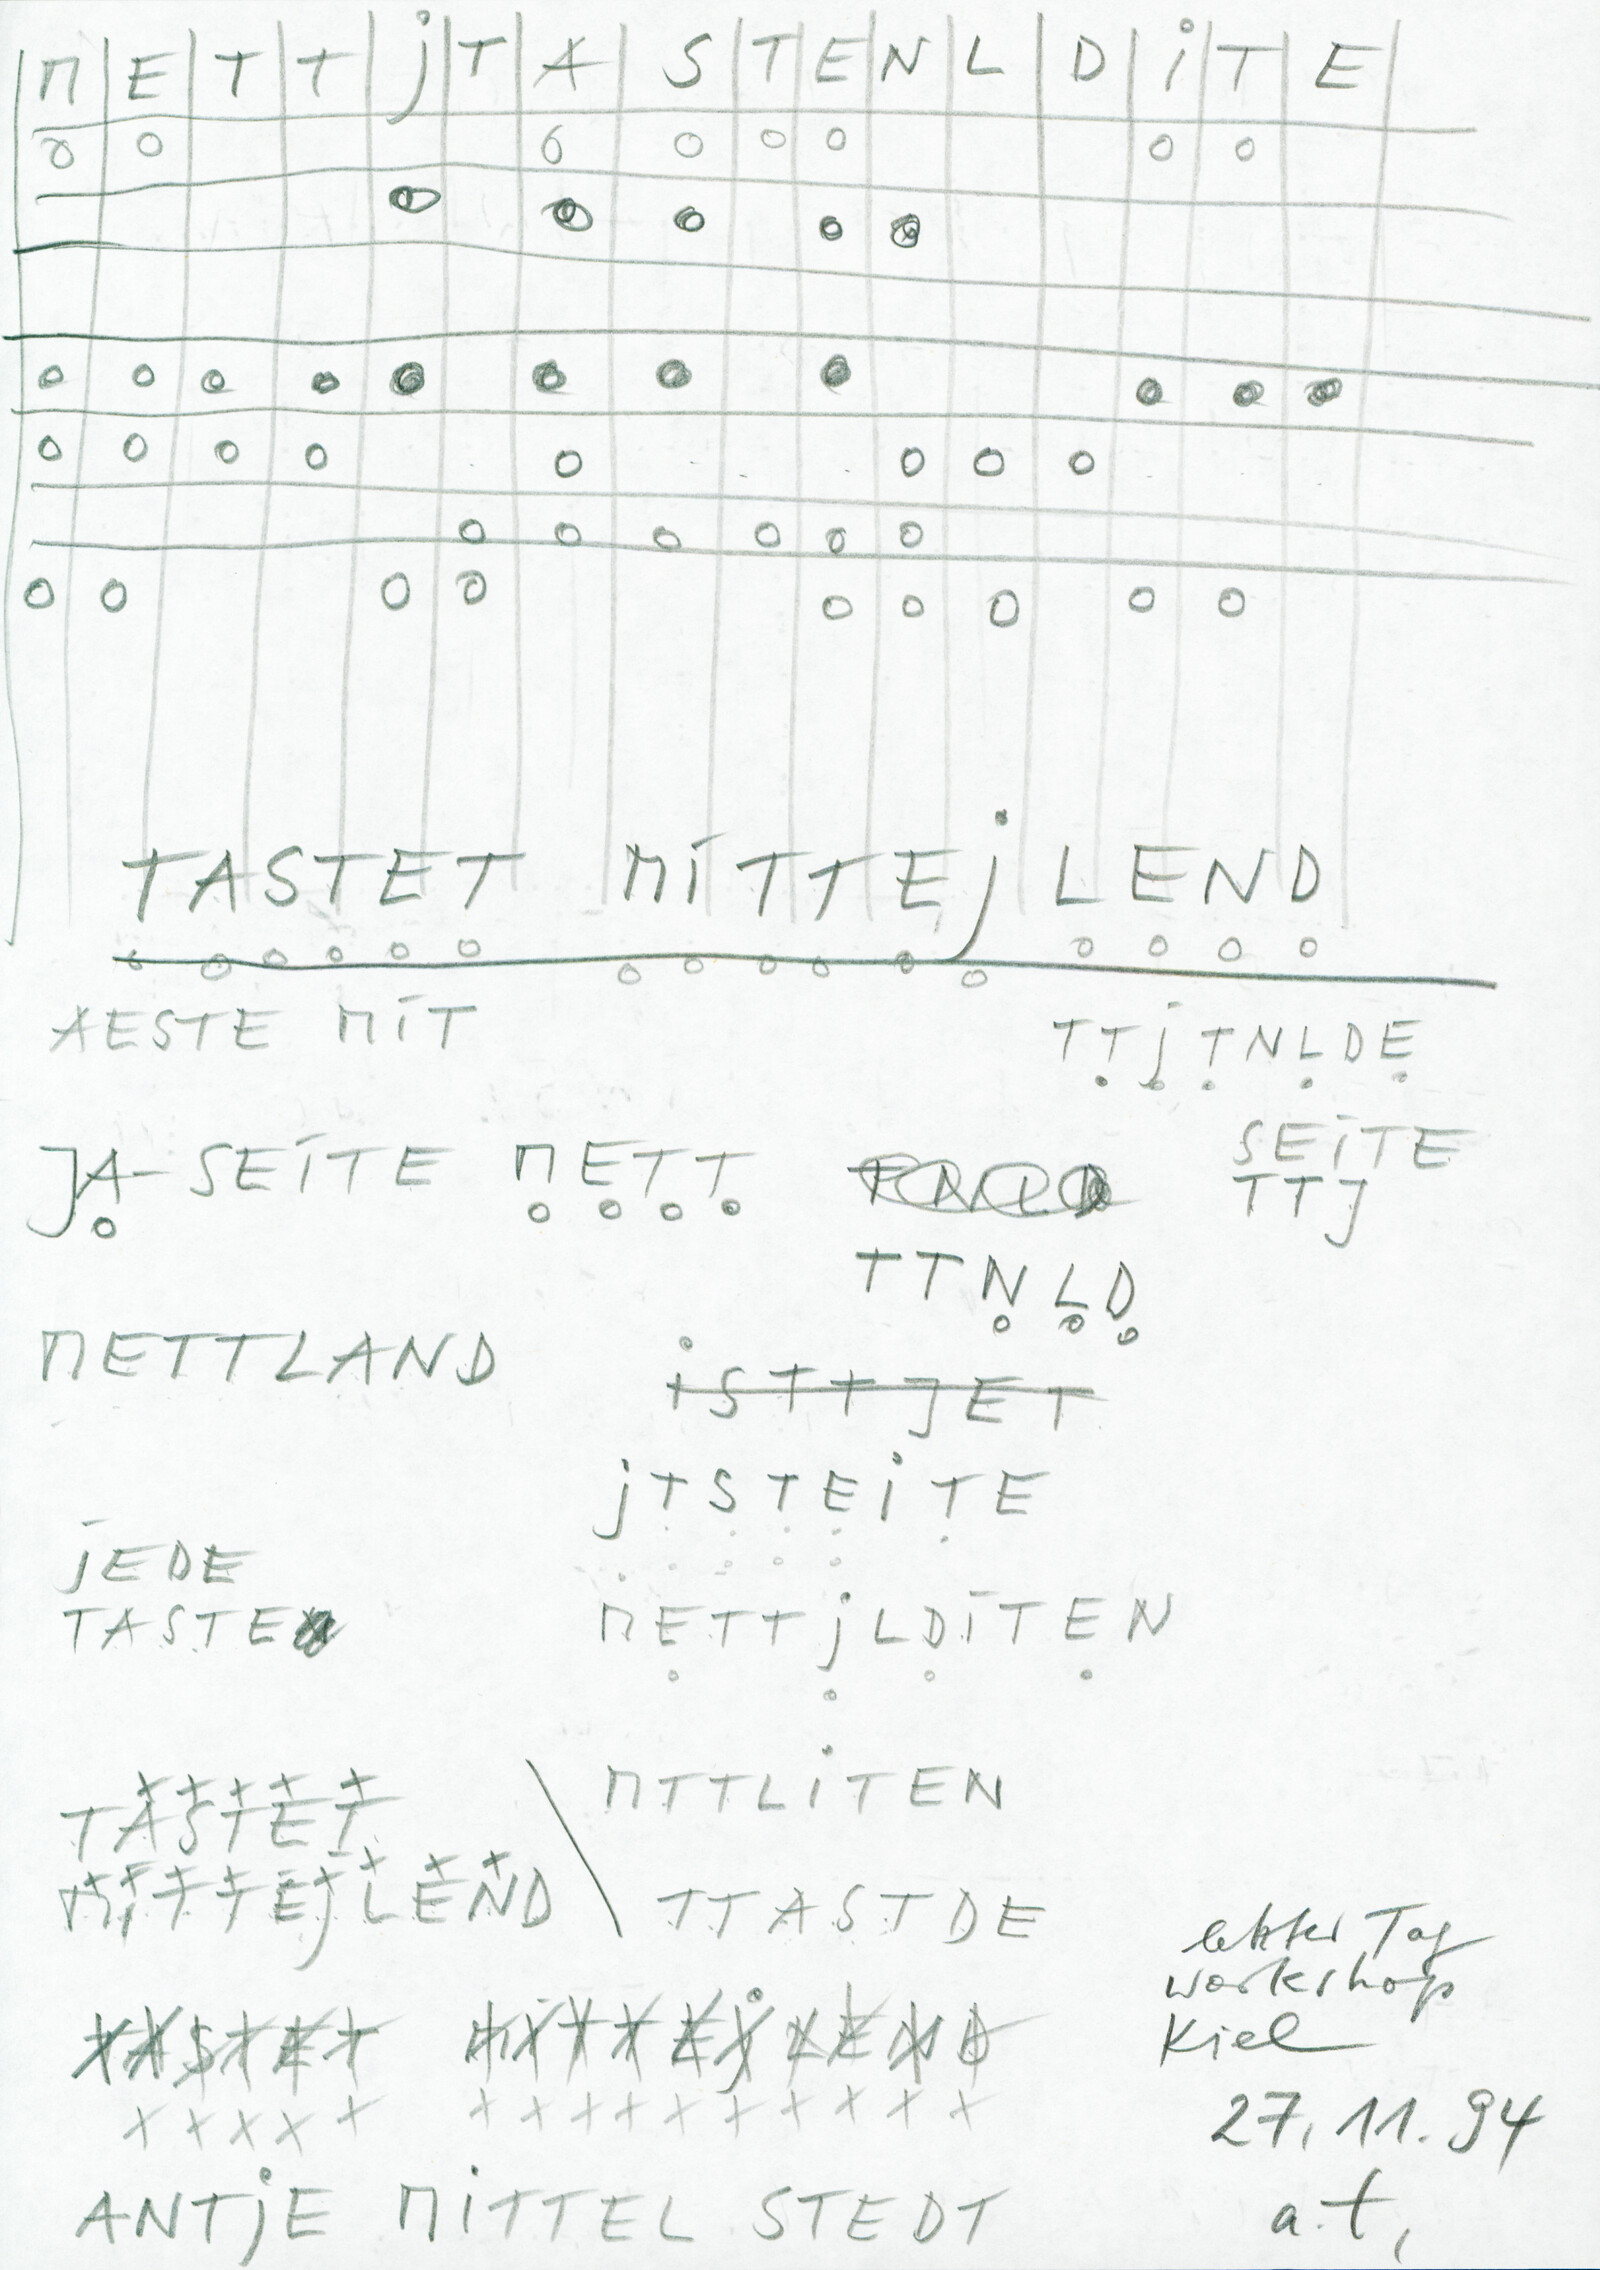 M E T T j T A S T E N L D i T E
TASTET MiTTEjLEND
AESTE MiT
TTjTNLDE
JA SEiTE METT
SEiTE
TTJ
TNLD
TTNLD
METTLAND
iSTTJET
jTSTEiTE
jEDE
TASTE
METTjLDiTEN
TASTET
MiTTEjLEND
MTTLiTEN
TTASTDE
TASTET MiTTEjLEND
letzter Tag
workshop
Kiel
27.11.94
a.t,
ANTjE MiTTEL STEDT